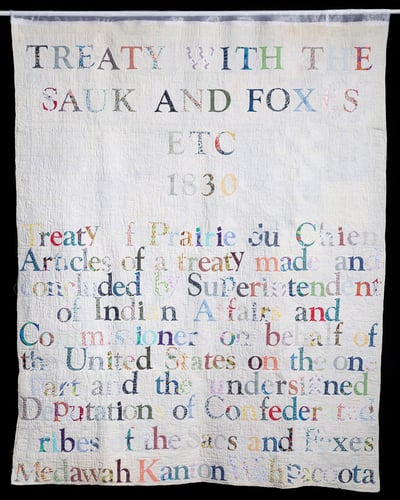 TREATY WITH THE
SAUK AND FOXES
ETC
1830
Treaty of Prairie du Chien
Articles of a treaty made and
concluded by Superintendent
of Indian Affairs and
Commissioner on behalf of
the United States on the one
part and the undersigned
Deputation of Confederated
Tribes of the Sacs and Foxes
Medawah Kanton Wahpacoota